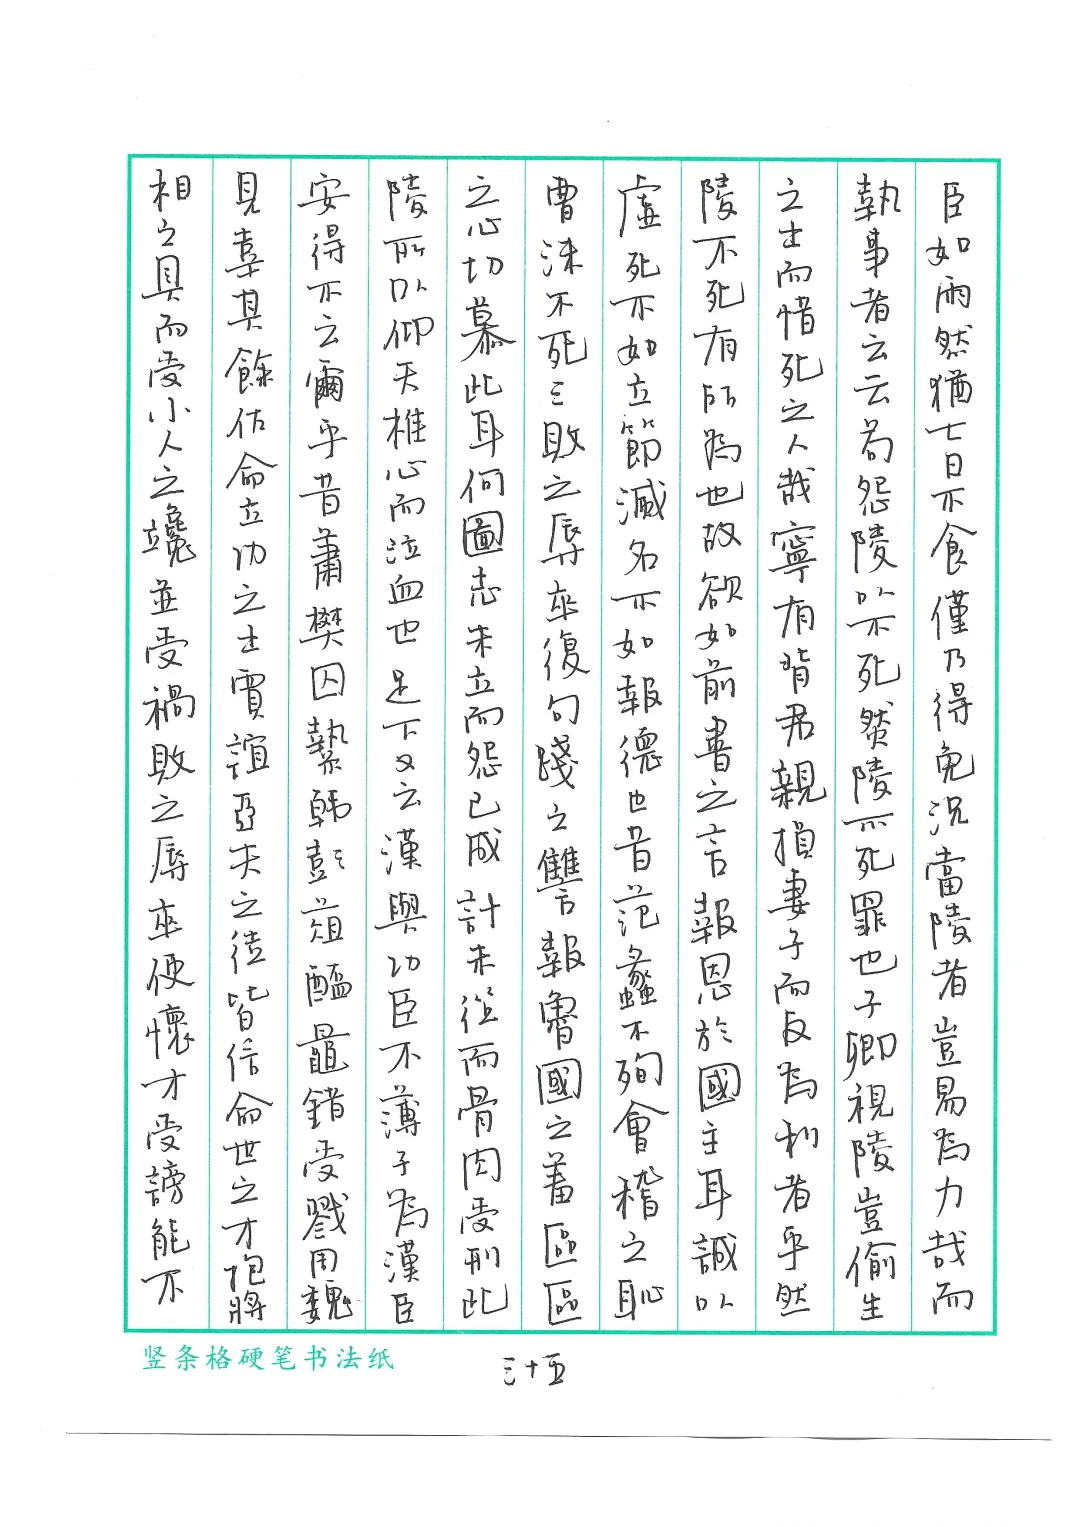 臣如雨然猶七日不食僅乃得免況當陵者豈易為力哉而
執事者云云苟怨陵以不死然陵不死罪也子卿視陵豈偷生
之士而惜死之人哉寧有背君親損妻子而反為利者乎然
陵不死有所為也故欲如前書之言報恩於國主耳誠以
虛死不如立節滅名不如報德也昔范蠡不殉會稽之恥
曹沬不死三敗之辱卒復句踐之讐報魯國之羞區區
之心切慕此耳何圖志未立而怨已成計未從而骨肉受刑此
陵所以仰天椎心而泣血也足下又云漢與功臣不薄子為漢臣
安得不云爾乎昔蕭樊囚縶韓彭葅醢鼂錯受戮周魏
見辜其餘佐命立功之士賈誼亞夫之徒皆信命世之才抱將
相之具而受小人之讒並受禍敗之辱卒使懷才受謗能不
竖条格硬笔书法纸
三十五